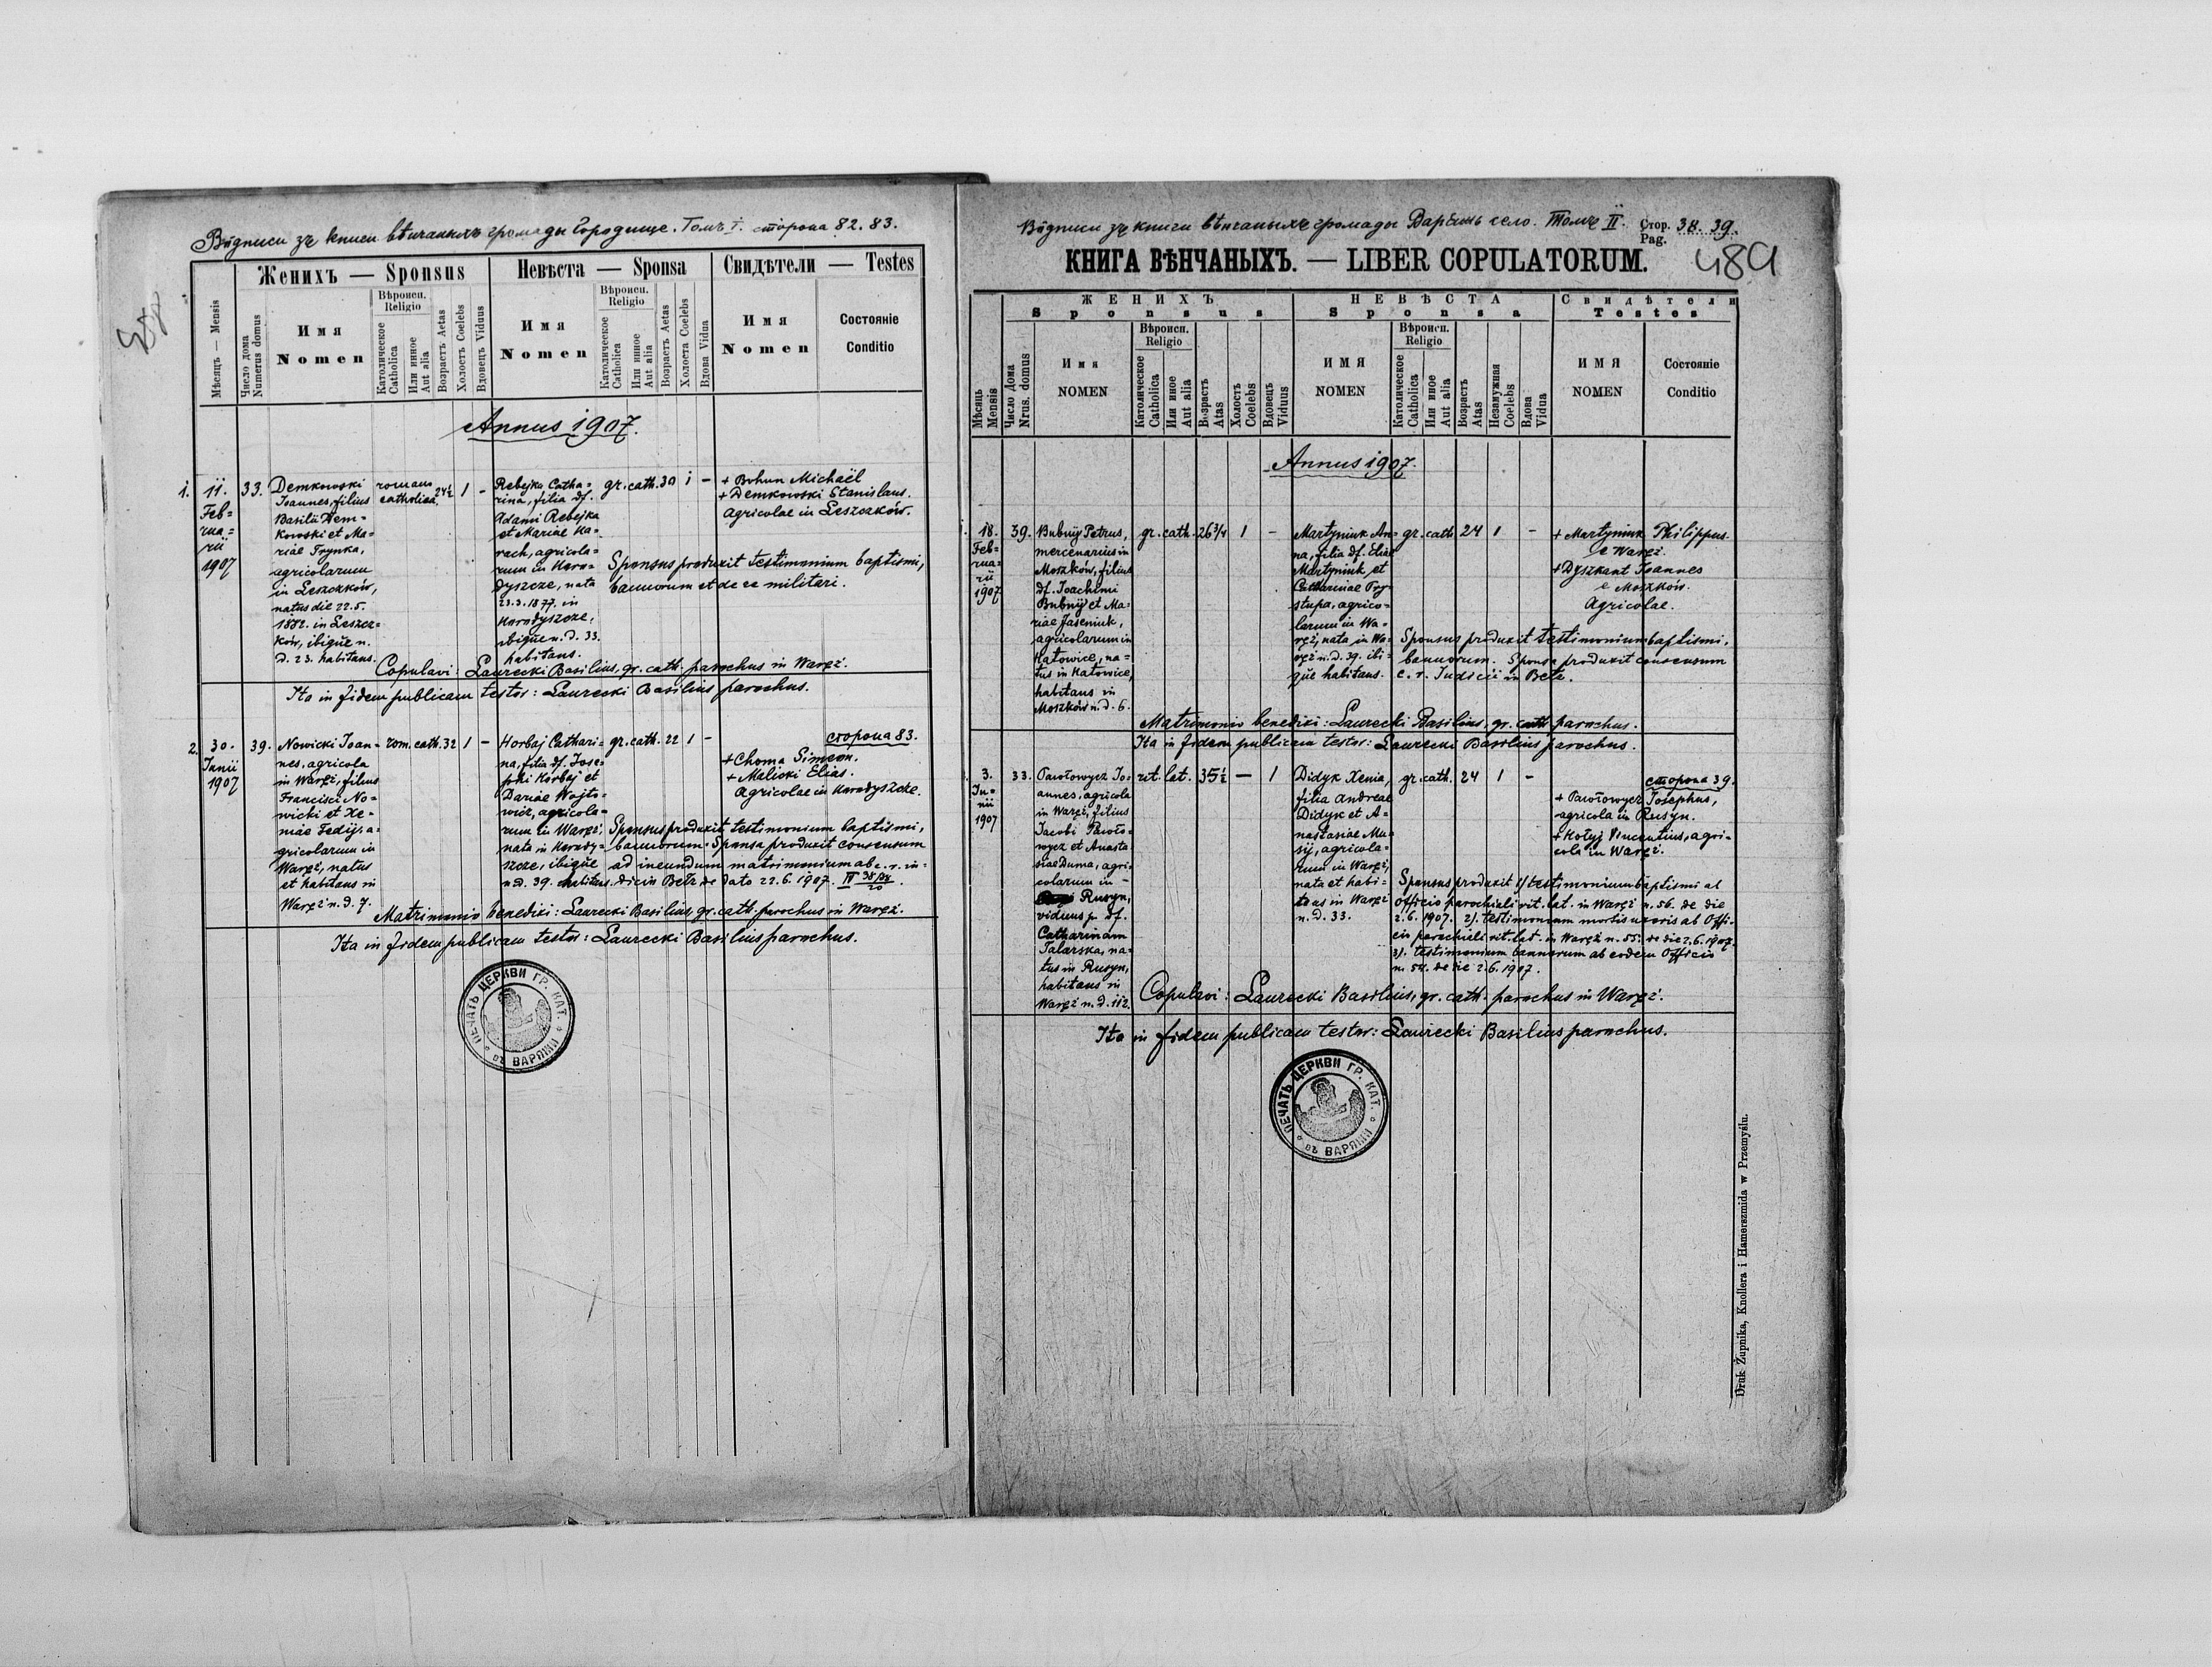 Вôдписи зъ книги вѣнчаныхъ громады Городище. Томъ I. сторона 82. 83.
Женихъ — Sponsus
Невѣста — Sponsa
Свидѣтели — Testes
Мѣсяцъ — Mensis
Число дома
Numerus domus
Имя
Nomen
Вѣроисп.
Religio
Католическое
Catholica
Или инное
Aut alia
Возрастъ Aetas
Холостъ Coelebs
Вдовецъ Viduus
Имя
Nomen
Вѣроисп.
Religio
Католическое
Catholica
Или инное
Aut alia
Возрастъ Aetas
Холоста Coelebs
Вдова Vidua
Имя
Nomen
Состояніе
Conditio
Annus 1907.
1.
11.
Feb=
rua=
rii
1907
33.
Demkowski
Ioannes, filius
Basilii Dem=
kowski et Ma=
riae Frynka,
agricolarum
in Leszczków,
natus die 22.5.
1882. in Leszcz=
ków, ibiqŭe n.
d. 23. habitans.
romano
catholica
24½
1
-
Rebejka Catha=
rina, filia df.
Adami Rebejka
et Mariae Ha=
rach, agricola=
rum in Horo=
dyszcze, nata
23.3.1877. in
Horodyszcze,
ibiqŭe n. d. 33.
habitans.
gr. cath.
30
1
-
+ Bohun Michaël
+ Demkowski Stanislaus.
agricolae in Leszczków.
Sponsus produxit testimonium baptismi,
bannorum et de re militari.
Copulavi: Laurecki Basilius, gr. cath. parochus in Waręż.
Ita in fidem publicam testor: Laurecki Basilius parochus.
2.
30.
Iunii
1907
39.
Nowicki Ioan=
nes, agricola
in Waręż, filius
Francisci No=
wicki et Xe=
niae Fedij, a=
gricolarum in
Waręż, natus
et habitans in
Waręż n. d. 7.
rom. cath.
32
1
-
Horbaj Cathari=
na, filia df. Jose=
phi Horbaj et
Dariae Wojto=
wicz, agricola=
rum in Waręż,
nata in Horody=
szcze, ibiqŭe
n. d. 39. habitans.
gr. cath.
22
1
-
сторона 83.
+ Choma Simeon.
+ Malicki Elias.
agricolae in Horodyszcze.
Sponsus produxit testimonium baptismi,
bannorum. Sponsa produxit consensum
ad ineundum matrimonium ab c. r. iu=
dicio Bełz de dato 22.6.1907.
Matrimonio benedixi: Laurecki Basilius, gr. cath. parochus in Waręż.
Ita in fidem publicam testor: Laurecki Basilius parochus.
ПЕЧАТЬ ЦЕРКВИ ГР. КАТ.
ВЪ ВАРЯЖИ
Вôдписи зъ книги вѣнчаныхъ громады Варяжъ село. Томъ II.
Стор.
Pag.
38. 39.
489
КНИГА ВѢНЧАНЫХЪ. — LIBER COPULATORUM.
ЖЕНИХЪ
Sponsus
НЕВѢСТА
Sponsa
Свидѣтели
Testes
Мѣсяцъ
Mensis
Число Дома
Nrus. domus
Имя
NOMEN
Вѣроисп.
Religio
Католическое
Catholica
Или инное
Aut alia
Возрастъ
Atas
Холостъ
Coelebs
Вдовецъ
Viduus
ИМЯ
NOMEN
Вѣроисп.
Religio
Католическое
Catholica
Или инное
Aut alia
Возрастъ
Atas
Незамужная
Coelebs
Вдова
Vidua
ИМЯ
NOMEN
Состояніе
Conditio
Annus 1907.
18.
Feb=
rua=
rii
1907
39.
Bubnij Petrus,
mercenarius in
Moszków, filius
df. Ioachimi
Bubnij et Ma=
riae Jaseniuk,
agricolarum in
Katowice, na=
tus in Katowice,
habitans in
Moszków n. d. 6.
gr. cath.
26¾
1
-
Martyniuk An=
na, filia df. Eliae
Martyniuk et
Catharinae Pry=
stupa, agrico=
larum in Wa=
ręż, nata in Wa=
ręż n. d. 39. ibi=
qŭe habitans.
gr. cath
24
1
-
+ Martyniuk Philippus.
e Waręż.
+ Dyszkant Ioannes
e Moszków.
Agricolae.
Sponsus produxit testimonium baptismi,
bannorum. Sponsa produxit consensum
c. r. Iudicii in Bełz.
Matrimonio benedixi: Laurecki Basilius, gr. cath. parochus.
Ita in fidem publicam testor: Laurecki Basilius parochus.
3.
Iu=
nii
1907
33.
Pawłowycz Io=
annes, agricola
in Waręż, filius
Iacobi Pawło=
wycz et Anasta
siae Duma, agri=
colarum in -
Rusyn,
viduus p. df.
Catharinam
Talarska, na=
tus in Rusyn,
habitans in
Waręż n. d. 112.
rit. lat.
35½
—
1
Didyk Xenia,
filia Andreae
Didyk et A=
nastasiae Mu=
sij, agricola=
rum in Waręż,
nata et habi=
tans in Waręż
n. d. 33.
gr. cath.
24
1
-
сторона 39.
+ Pawłowycz Iosephus,
agricola in Rusyn.
+ Hołyj Vincentius, agri=
cola in Waręż.
Sponsus produxit 1) testimonium baptismi ab
Officio parochiali rit. lat. in Waręż n. 56. de die
2.6. 1907. 2). testimonium mortis uxoris ab Offi=
cio parochiali rit. lat. in Waręż n. 55. de die 2.6.1907.
3). testimonium bannorum ab eodem Officio
n. 54. de die 2.6.1907.
Copulavi: Laurecki Basilius, gr. cath. parochus in Waręż.
Ita in fidem publicam testor: Laurecki Basilius parochus.
ПЕЧАТЬ ЦЕРКВИ ГР. КАТ.
ВЪ ВАРЯЖИ
Druk Żupnika, Knollera i Hamerszmida w Przemyślu.